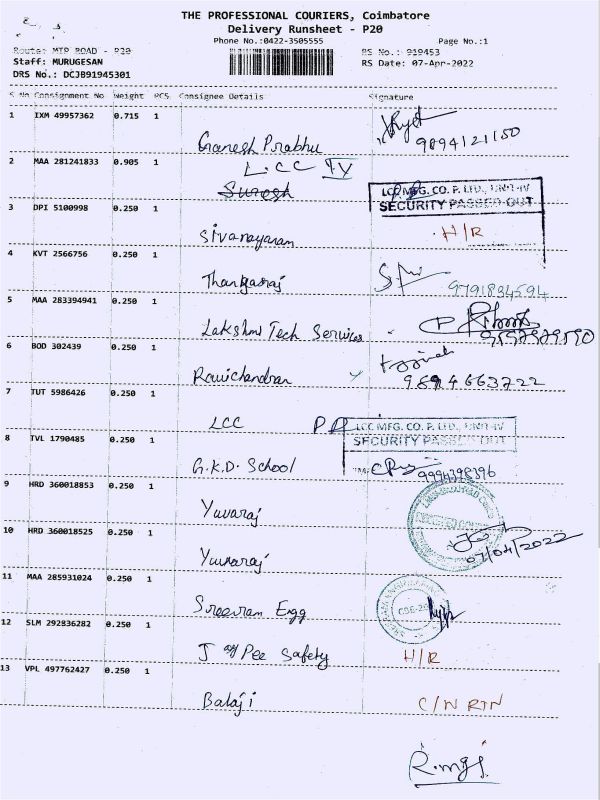 THE PROFESSIONAL COURIERS, Coimbatore
Delivery Runsheet - P20
Phone No.:0422-3505555
Page No.:1
Route: MTP ROAD - P20
RS No.: 919453
Staff: MURUGESAN
RS Date: 07-Apr-2022
DRS No.: DCJB91945301
S No Consignment No Weight PCS Consignee Details Signature
1 IXM 49957362 0.715 1
Ganesh Prabhu 9894121150
2 MAA 281241833 0.905 1
L.CC IV
Suresh
LCC MFG. CO. P. LTD., UNIT-IV
SECURITY PASSED OUT
3 DPI 5100998 0.250 1
Sivanayaram H/R
4 KVT 2566756 0.250 1
Thangaraj 9791834594
5 MAA 283394941 0.250 1
Lakshmi Tech Services
6 BOD 302439 0.250 1
Ravichandran 9894663722
7 TUT 5986426 0.250 1
LCC
LCC MFG. CO. P. LTD., UNIT-IV
SECURITY PASSED OUT
8 TVL 1790485 0.250 1
G.K.D. School 9994398396
9 HRD 360018853 0.250 1
Yuvaraj
10 HRD 360018525 0.250 1
07/04/2022
Yuvaraj
11 MAA 285931024 0.250 1
Sreeram Engg
12 SLM 292836282 0.250 1
J Pee Safety H/R
13 VPL 497762427 0.250 1
Balaji C/N RTN